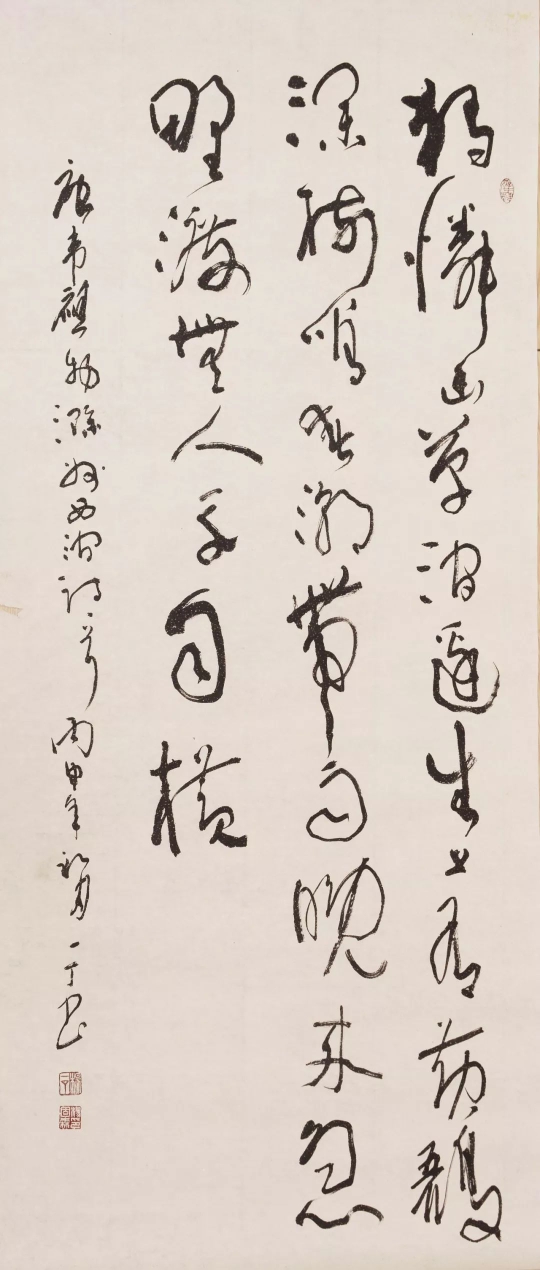 獨憐幽草澗邊生上有黃鸝
深樹鳴春潮帶雨晚来急
野渡無人舟自橫
唐韦應物滁州西澗詩一首 丙申年初夏 一丁書